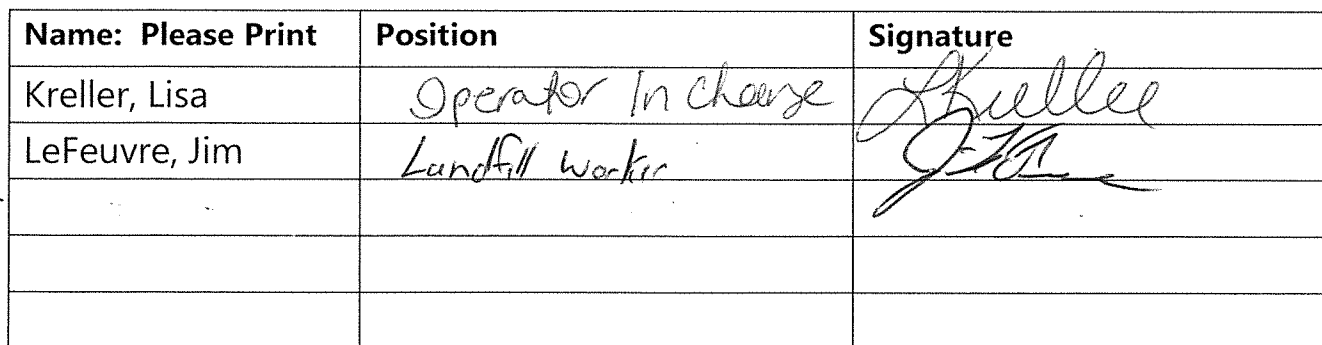 Name: Please Print Position Signature
Kreller, Lisa Operator In Charge LKreller
LeFeuvre, Jim Landfill Worker